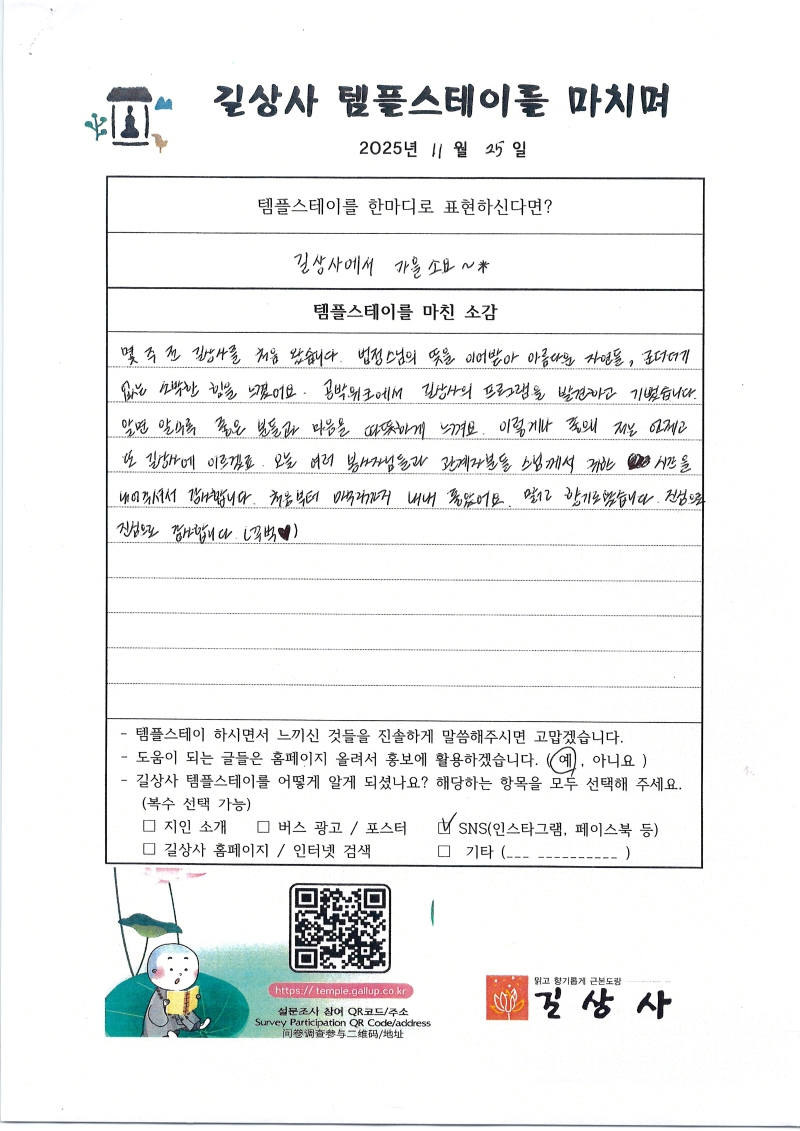 길상사 템플스테이를 마치며
2025년 11 월 25 일
템플스테이를 한마디로 표현하신다면?
길상사에서 가을 소요 ~*
템플스테이를 마친 소감
몇 주 전 길상사를 처음 왔습니다. 법정스님의 뜻을 이어받아 아름다운 자연들, 군더더기
없는 소박한 힘을 느꼈어요. 공박위코에서 길상사의 프로그램을 발견하고 기뻤습니다.
알면 알수록 좋은 분들과 마음을 따뜻하게 느껴요. 이렇게나 좋의 저는 언제고
또 길상사에 이르겠죠. 오늘 여러 봉사자님들과 관계자분들 스님께서 귀한 시간을
내어주셔서 감사합니다. 처음부터 마무리까지 내내 좋았어요. 맑고 향기로웠습니다. 진심으로
진심으로 감사합니다. (꾸벅♥)
- 템플스테이 하시면서 느끼신 것들을 진솔하게 말씀해주시면 고맙겠습니다.
- 도움이 되는 글들은 홈페이지 올려서 홍보에 활용하겠습니다. ( 예 , 아니요 )
- 길상사 템플스테이를 어떻게 알게 되셨나요? 해당하는 항목을 모두 선택해 주세요.
(복수 선택 가능)
□ 지인 소개 □ 버스 광고 / 포스터 ☑ SNS(인스타그램, 페이스북 등)
□ 길상사 홈페이지 / 인터넷 검색 □ 기타 (___ __________ )
https://temple.gallup.co.kr
설문조사 참여 QR코드/주소
Survey Participation QR Code/address
问卷调查参与二维码/地址
맑고 향기롭게 근본도량
길상사